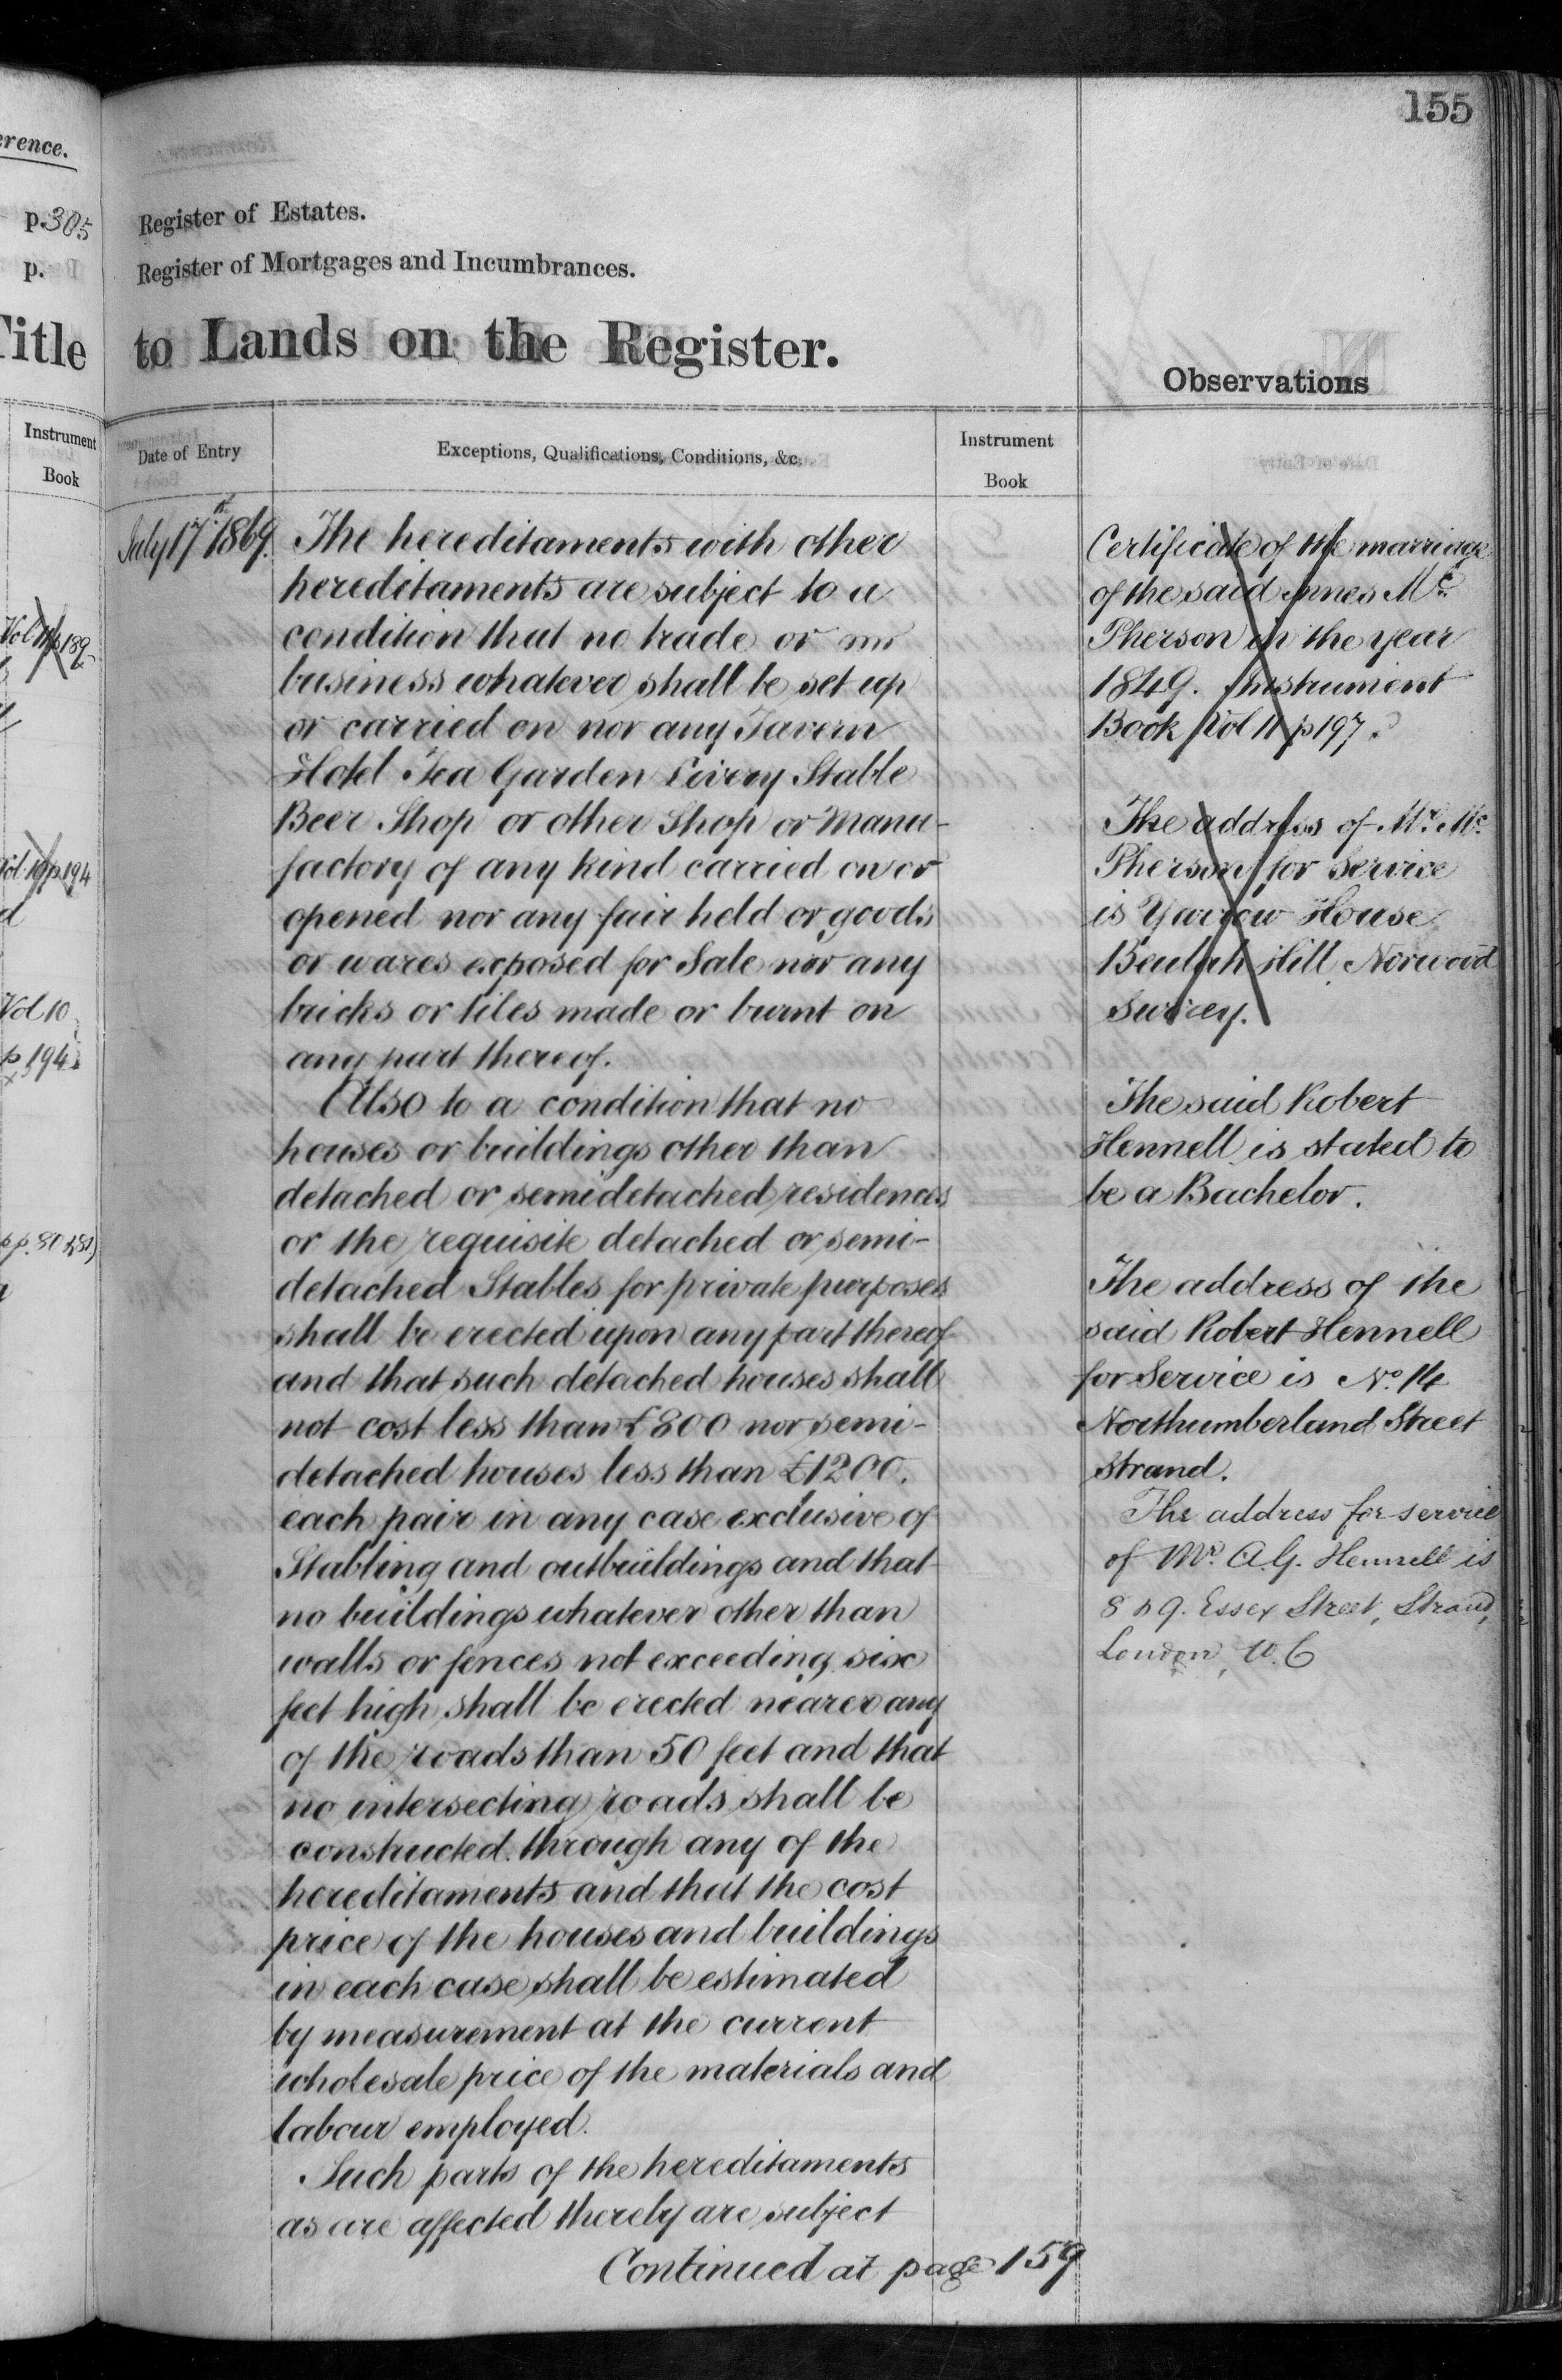 155
erence.
p. 305
p.
Title
Instrument
Book
Vol 10
p 194
Register of Estates.
Register of Mortgages and Incumbrances.
to Lands on the Register.
Observations
Date of Entry
Exceptions, Qualifications, Conditions, &c.
Instrument
Book
July 17th 1869.
The hereditaments with other
hereditaments are subject to a
condition that no trade or
business whatever shall be set up
or carried on nor any Tavern
Hotel Tea Garden Livery Stable
Beer Shop or other Shop or Manu-
factory of any kind carried on or
opened nor any fair held or goods
or wares exposed for Sale nor any
bricks or tiles made or burnt on
any part thereof.
Also to a condition that no
houses or buildings other than
detached or semidetached residences
or the requisite detached or semi-
detached Stables for private purposes
shall be erected upon any part thereof
and that such detached houses shall
not cost less than £800 nor semi-
detached houses less than £1200.
each pair in any case exclusive of
Stabling and outbuildings and that
no buildings whatever other than
walls or fences not exceeding six
feet high shall be erected nearer any
of the roads than 50 feet and that
no intersecting roads shall be
constructed through any of the
hereditaments and that the cost
price of the houses and buildings
in each case shall be estimated
by measurement at the current
wholesale price of the materials and
labour employed.
Such parts of the hereditaments
as are affected thereby are subject
Continued at page 159
Certificate of the marriage
of the said Innes Mc
Pherson in the year
1849. Instrument
Book Vol 11 p 197.
The address of Mr. Mc
Pherson for Service
is Yarrow House
Beulah Hill Norwood
Surrey.
The said Robert
Hennell is stated to
be a Bachelor.
The address of the
said Robert Hennell
for Service is No. 14
Northumberland Street
Strand.
The address for service
of Mr. A.G. Hennell is
8 & 9. Essex Street, Strand,
London, W.C